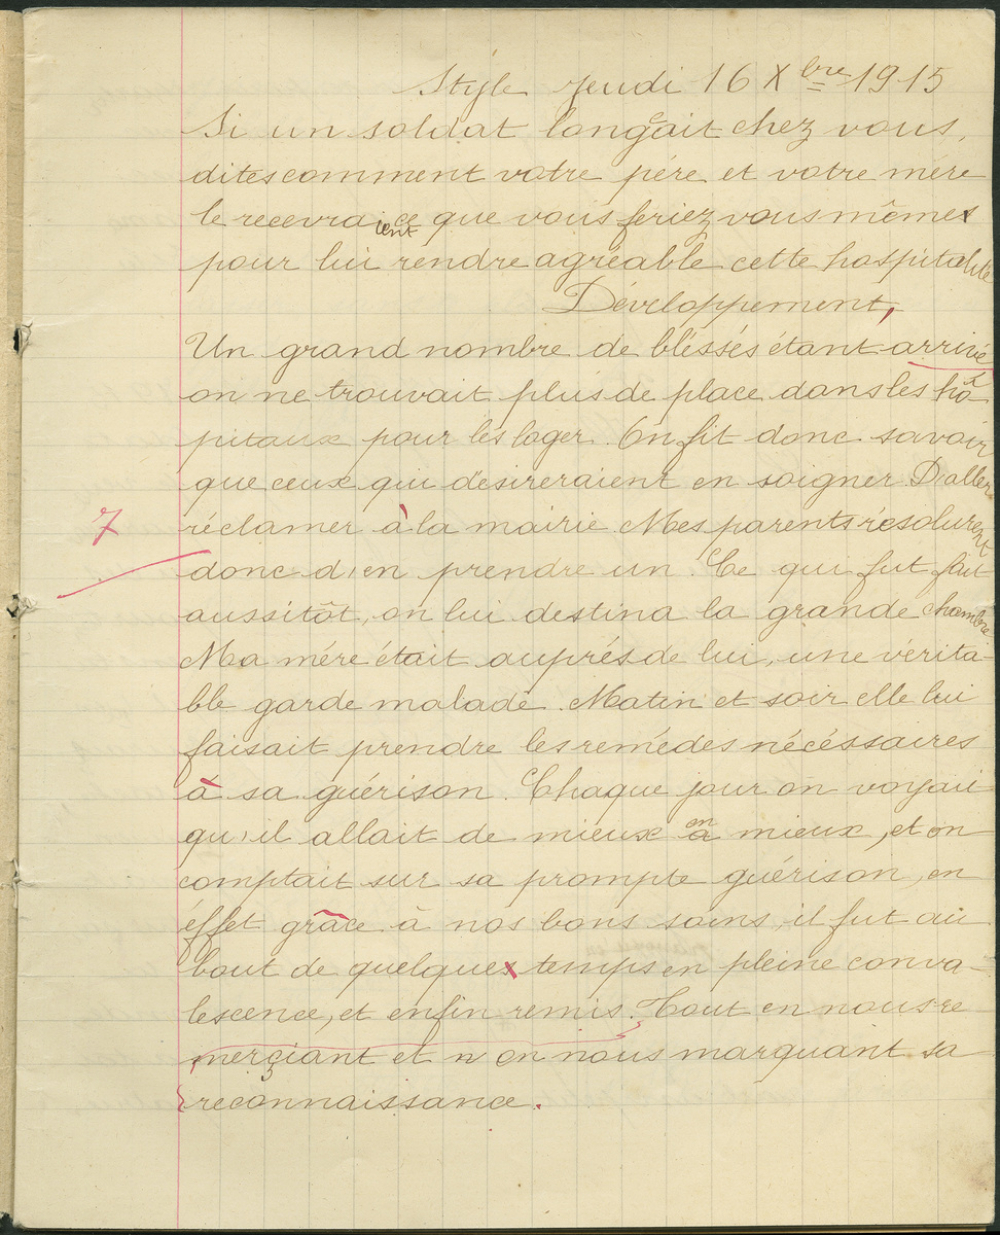 Style Jeudi 16 Xbre 1915
Si un soldat longeait chez vous,
dites comment votre père et votre mère
le recevraient ce que vous feriez vous mêmes
pour lui rendre agréable cette hospitalité
Développement,
Un grand nombre de bléssés étant arrivé
on ne trouvait plus de place dans les hô-
pitaux pour les loger. On fit donc savoir
que ceux qui désireraient en soigner D'aller
réclamer à la mairie. Mes parents résolurent
7
donc d'en prendre un. Ce qui fut fait
aussitôt, on lui destina la grande chambre
Ma mére était auprés de lui, une vérita-
ble garde malade. Matin et soir elle lui
faisait prendre les remédes nécéssaires
à sa guérison. Chaque jour on voyait
qu'il allait de mieux en mieux, et on
comptait sur sa prompte guérison, en
éffet grâce à nos bons soins, il fut au
bout de quelques temps en pleine conva-
lescence, et enfin remis. Tout en nous re
merçiant et n on nous marquant sa
reconnaissance.